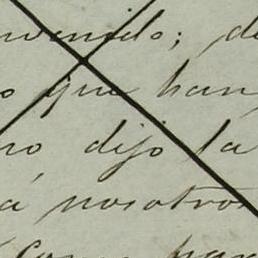 venido; d
o que han
no dijo la
á nosotros